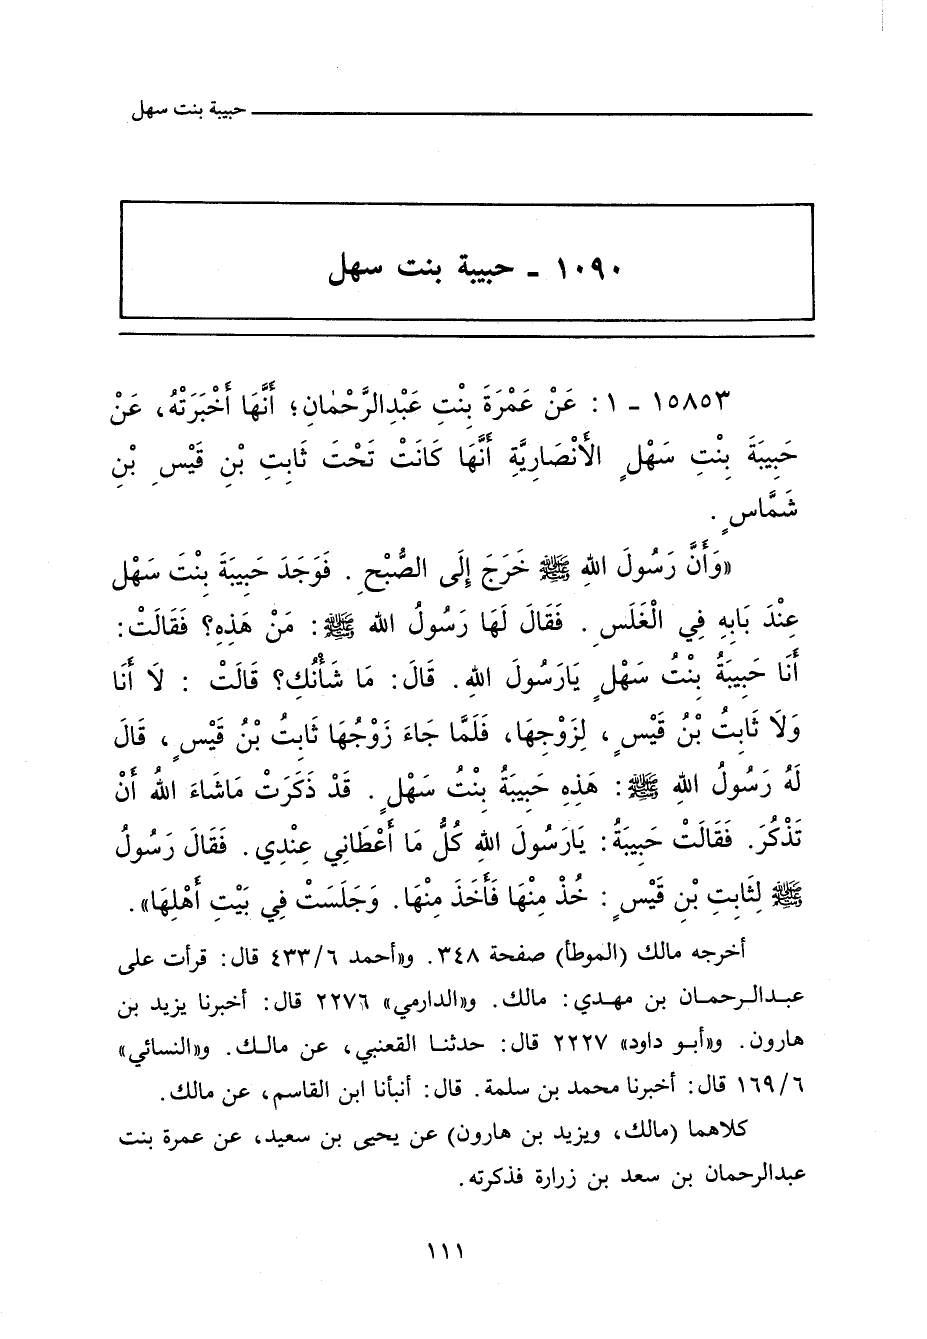 حبيبة بنت سهل
١٠٩٠ - حبيبة بنت سهل
١٥٨٥٣ - ١: عَنْ عَمْرَةَ بِنْتِ عَبْدِالرَّحْمٰنِ؛ أَنَّهَا أَخْبَرَتْهُ، عَنْ
حَبِيبَةَ بِنْتِ سَهْلٍ الأَنْصَارِيَّةِ أَنَّهَا كَانَتْ تَحْتَ ثَابِتِ بْنِ قَيْسِ بْنِ
شَمَّاسٍ.
«وَأَنَّ رَسُولَ اللهِ ﷺ خَرَجَ إِلَى الصُّبْحِ. فَوَجَدَ حَبِيبَةَ بِنْتَ سَهْلٍ
عِنْدَ بَابِهِ فِي الْغَلَسِ. فَقَالَ لَهَا رَسُولُ الله ﷺ: مَنْ هَذِهِ؟ فَقَالَتْ:
أَنَا حَبِيبَةُ بِنْتُ سَهْلٍ يَارَسُولَ اللهِ. قَالَ: مَا شَأْنُكِ؟ قَالَتْ: لَا أَنَا
وَلَا ثَابِتُ بْنُ قَيْسٍ، لِزَوْجِهَا، فَلَمَّا جَاءَ زَوْجُهَا ثَابِتُ بْنُ قَيْسٍ، قَالَ
لَهُ رَسُولُ اللهِ ﷺ: هَذِهِ حَبِيبَةُ بِنْتُ سَهْلٍ. قَدْ ذَكَرَتْ مَاشَاءَ اللهُ أَنْ
تَذْكُرَ. فَقَالَتْ حَبِيبَةُ: يَارَسُولَ اللهِ كُلُّ مَا أَعْطَانِي عِنْدِي. فَقَالَ رَسُولُ
ﷺ لِثَابِتِ بْنِ قَيْسٍ: خُذْ مِنْهَا فَأَخَذَ مِنْهَا. وَجَلَسَتْ فِي بَيْتِ أَهْلِهَا».
أخرجه مالك (الموطأ) صفحة ٣٤٨. و«أحمد ٤٣٣/٦ قال: قرأت على
عبدالرحمان بن مهدي: مالك. و«الدارمي» ٢٢٧٦ قال: أخبرنا يزيد بن
هارون. و«أبو داود» ٢٢٢٧ قال: حدثنا القعنبي، عن مالك. و«النسائي»
١٦٩/٦ قال: أخبرنا محمد بن سلمة. قال: أنبأنا ابن القاسم، عن مالك.
كلاهما (مالك، ويزيد بن هارون) عن يحيى بن سعيد، عن عمرة بنت
عبدالرحمان بن سعد بن زرارة فذكرته.
١١١